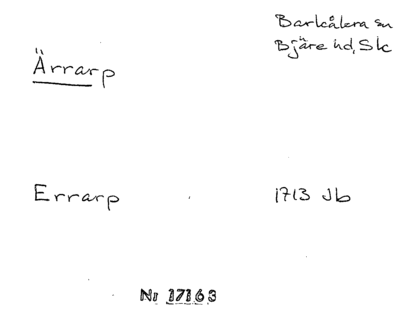 Barkåkra sn
Bjäre hd, Sk
Ärrarp
Errarp
1713 Jb
Nr 17163